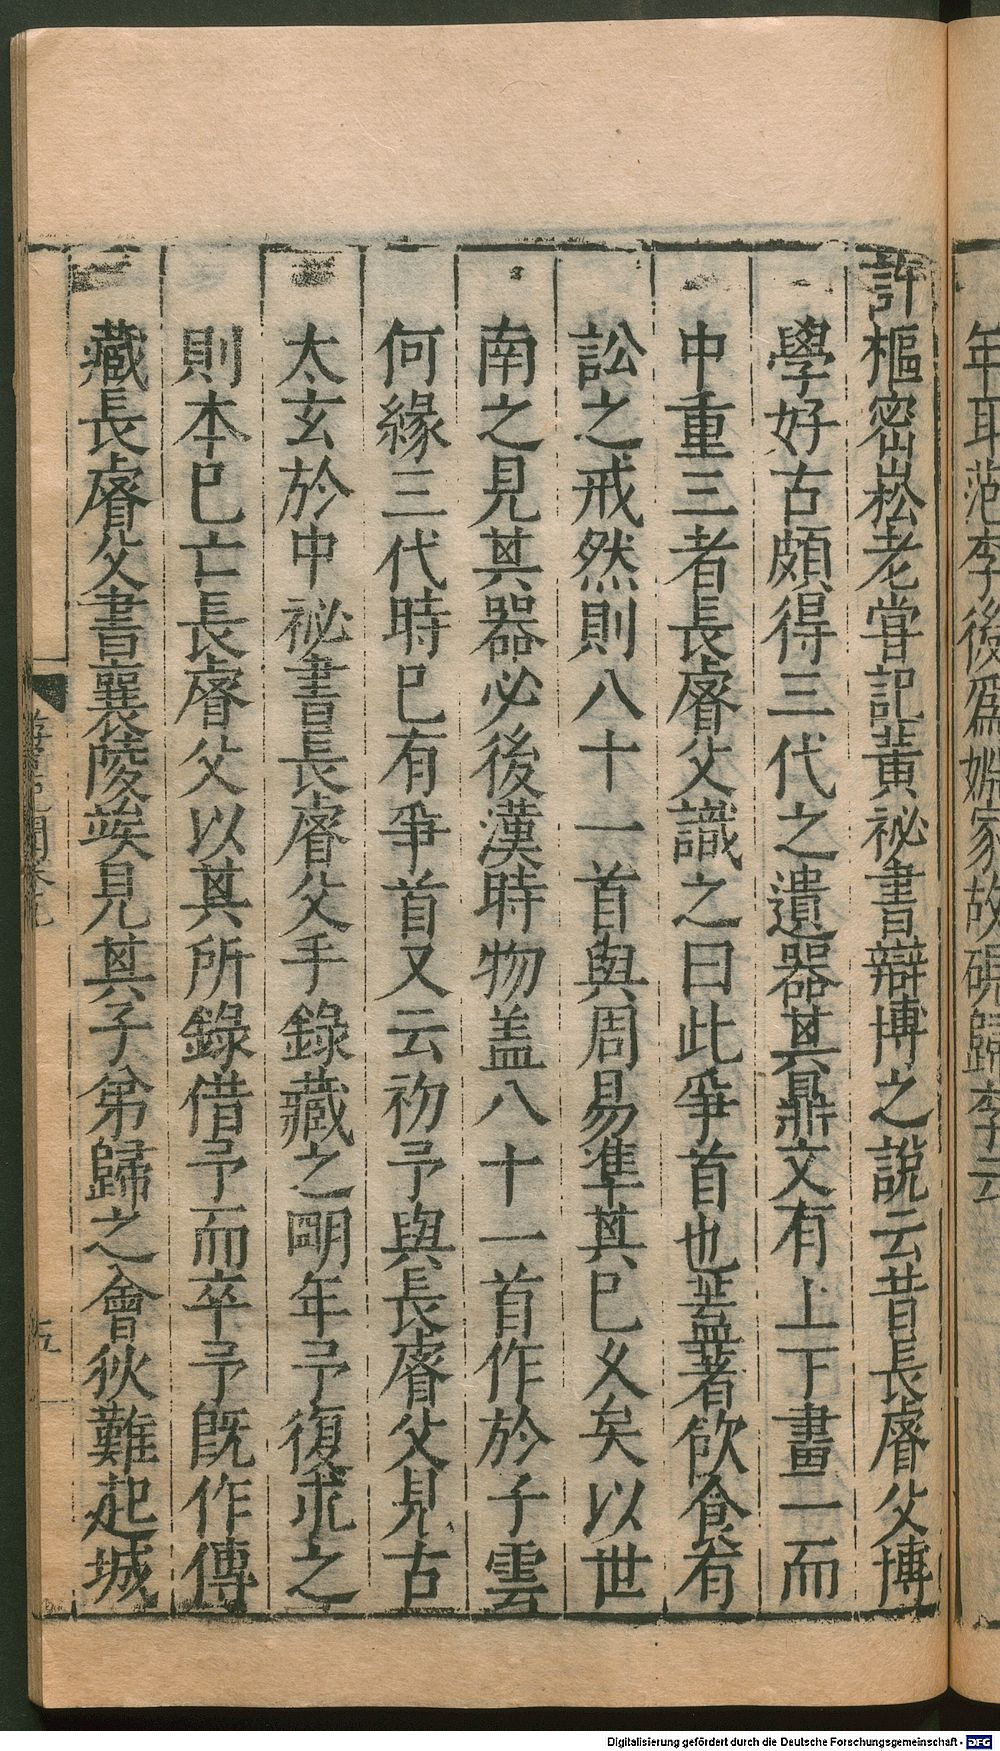 許樞密崧老嘗記黃祕書辯博之說云昔長睿父博
學好古頗得三代之遺器其鼎文有上下畫一而
中重三者長睿父識之曰此爭首也蓋著飲食有
訟之戒然則八十一首與周易準其巳乆矣以世
南之見其器必後漢時物盖八十一首作於子雲
何緣三代時巳有爭首又云初予與長睿父見古
太玄於中祕書長睿父手錄藏之明年予復求之
則本巳亡長睿父以其所錄借予而卒予旣作傳
藏長睿父書襄陵竢見其子弟歸之會狄難起城
五
Digitalisierung gefördert durch die Deutsche Forschungsgemeinschaft - DFG